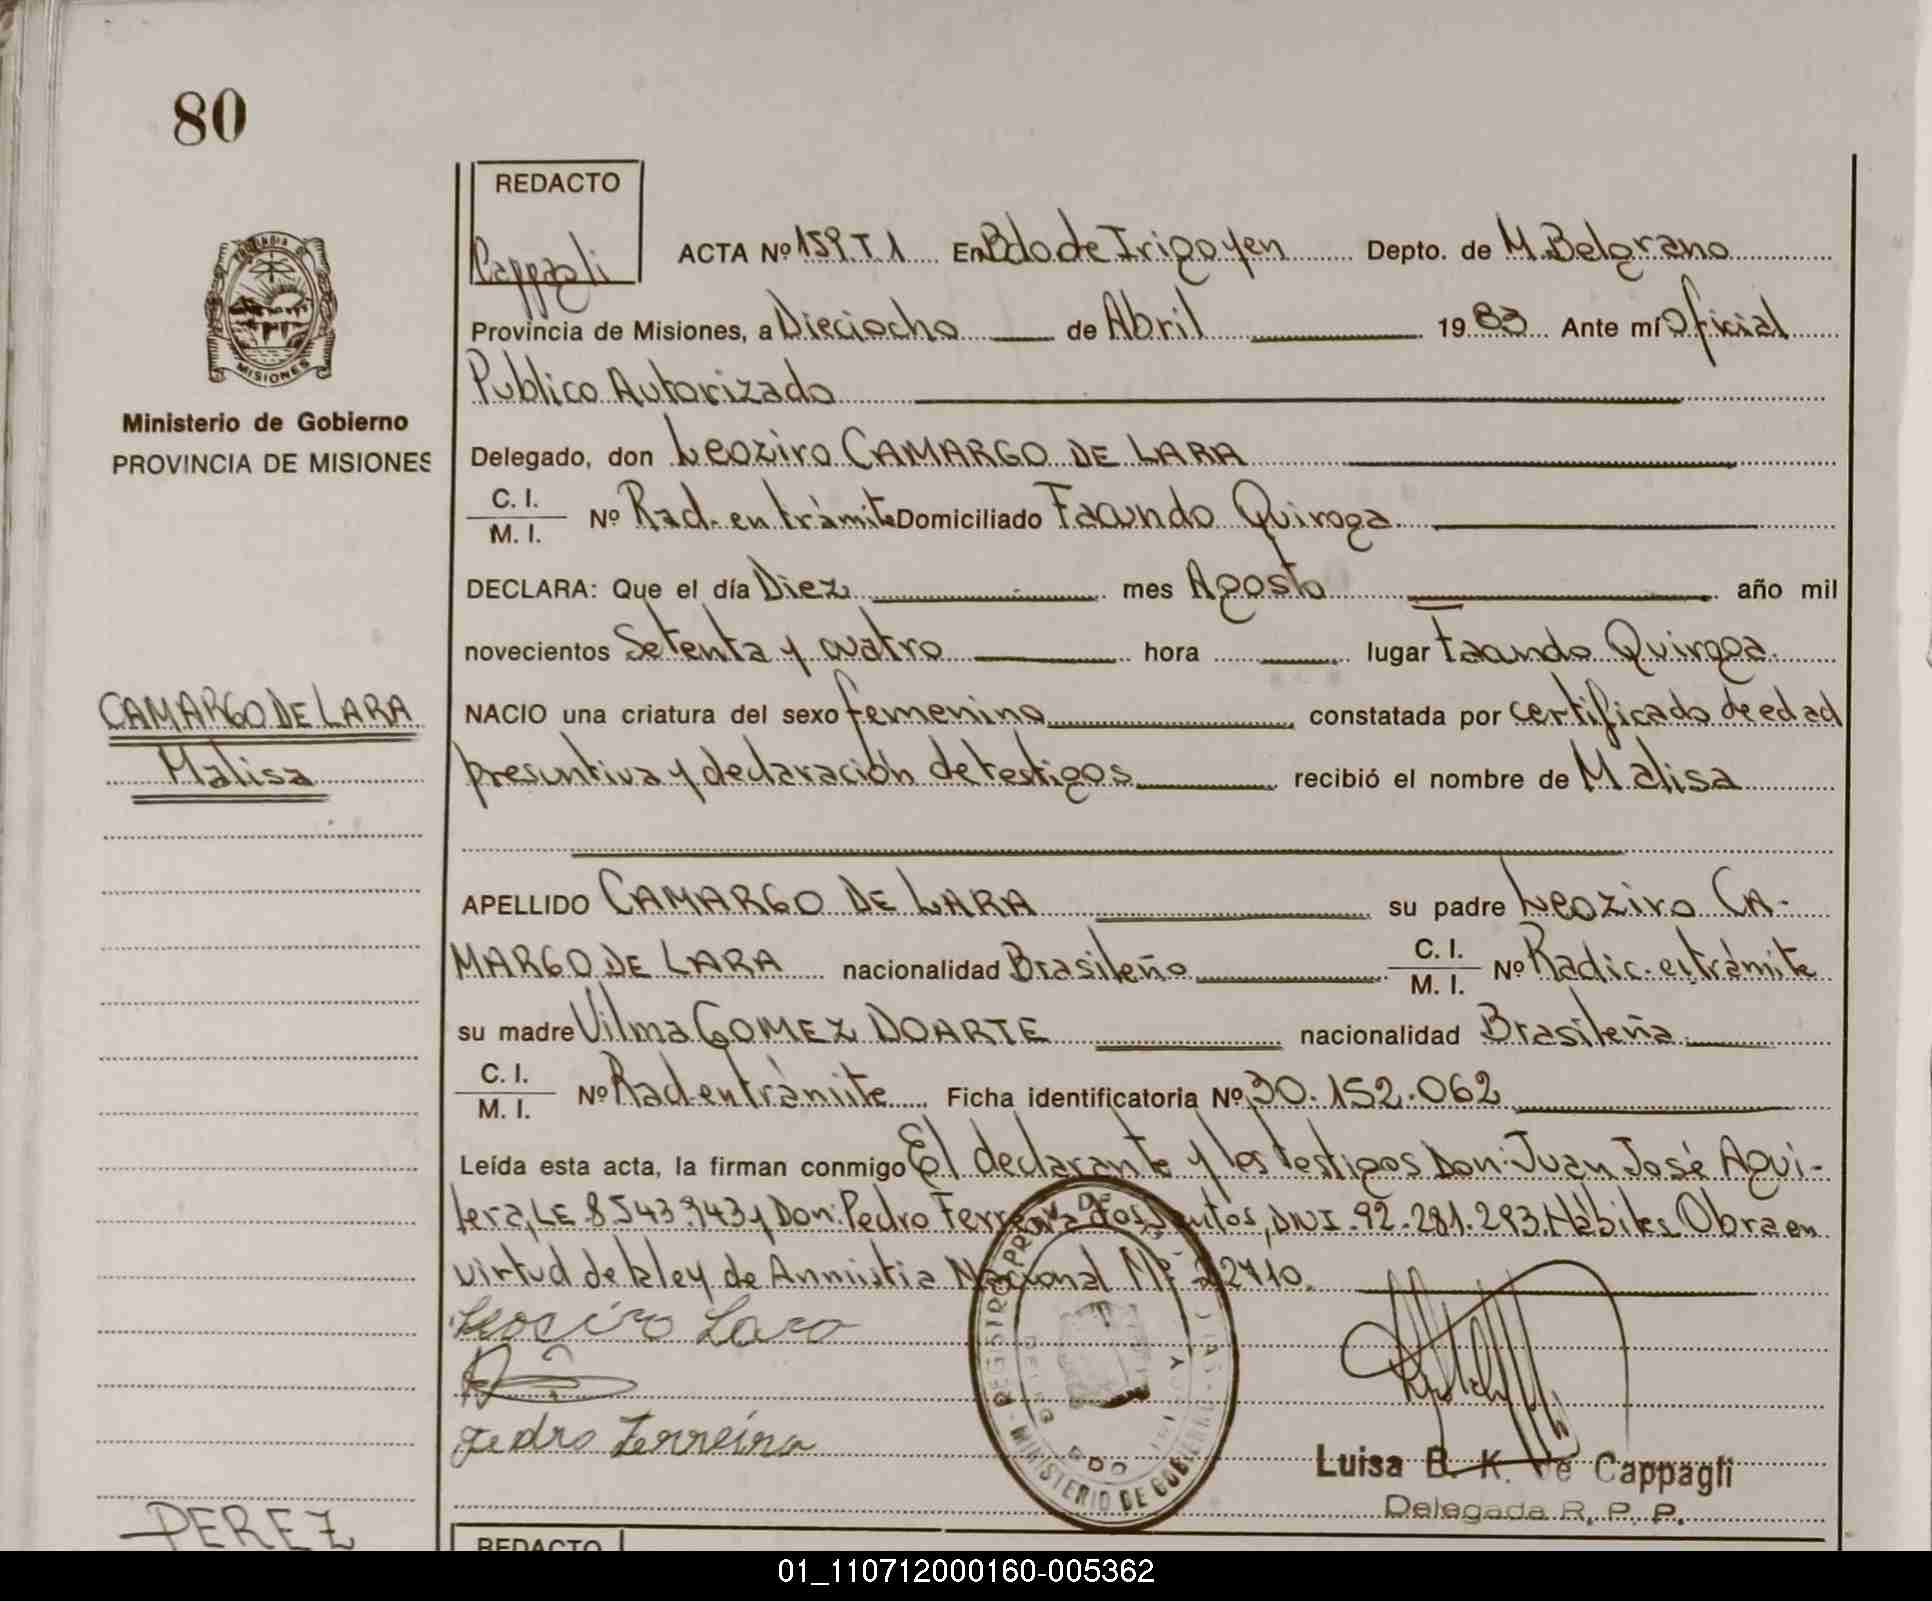 80
REDACTO
Cappagli
PROVINCIA DE MISIONES
Ministerio de Gobierno
PROVINCIA DE MISIONES
ACTA Nº 159.T.1 En Bdo de Irigoyen Depto. de M. Belgrano
Provincia de Misiones, a Dieciocho de Abril 19 83 Ante mí Oficial
Publico Autorizado
Delegado, don Leoziro CAMARGO DE LARA
C. I. / M. I. Nº Rad. en trámite Domiciliado Facundo Quiroga
DECLARA: Que el día Diez mes Agosto año mil
novecientos Setenta y cuatro hora lugar Facundo Quiroga
CAMARGO DE LARA
Malisa
NACIO una criatura del sexo femenino constatada por certificado de edad
presuntiva y declaración de testigos recibió el nombre de Malisa
APELLIDO CAMARGO DE LARA su padre Leoziro CA-
MARGO DE LARA nacionalidad Brasileño C. I. / M. I. Nº Radic. en trámite
su madre Vilma GOMEZ DOARTE nacionalidad Brasileña
C. I. / M. I. Nº Rad en trámite Ficha identificatoria Nº 30.152.062
Leída esta acta, la firman conmigo El declarante y los testigos Don: Juan José Agui-
lera, LE 8543.943 y Don: Pedro Ferreira dos Santos, DNI. 92.281.293. Hábiles Obra en
virtud de la ley de Amnistia Nacional Nº 22710.
Leosiro Lara
Pedro Ferreira
MINISTERIO DE GOBIERNO
Luisa B. K. de Cappagli
Delegada R. P. P.
PEREZ
REDACTO
01_110712000160-005362